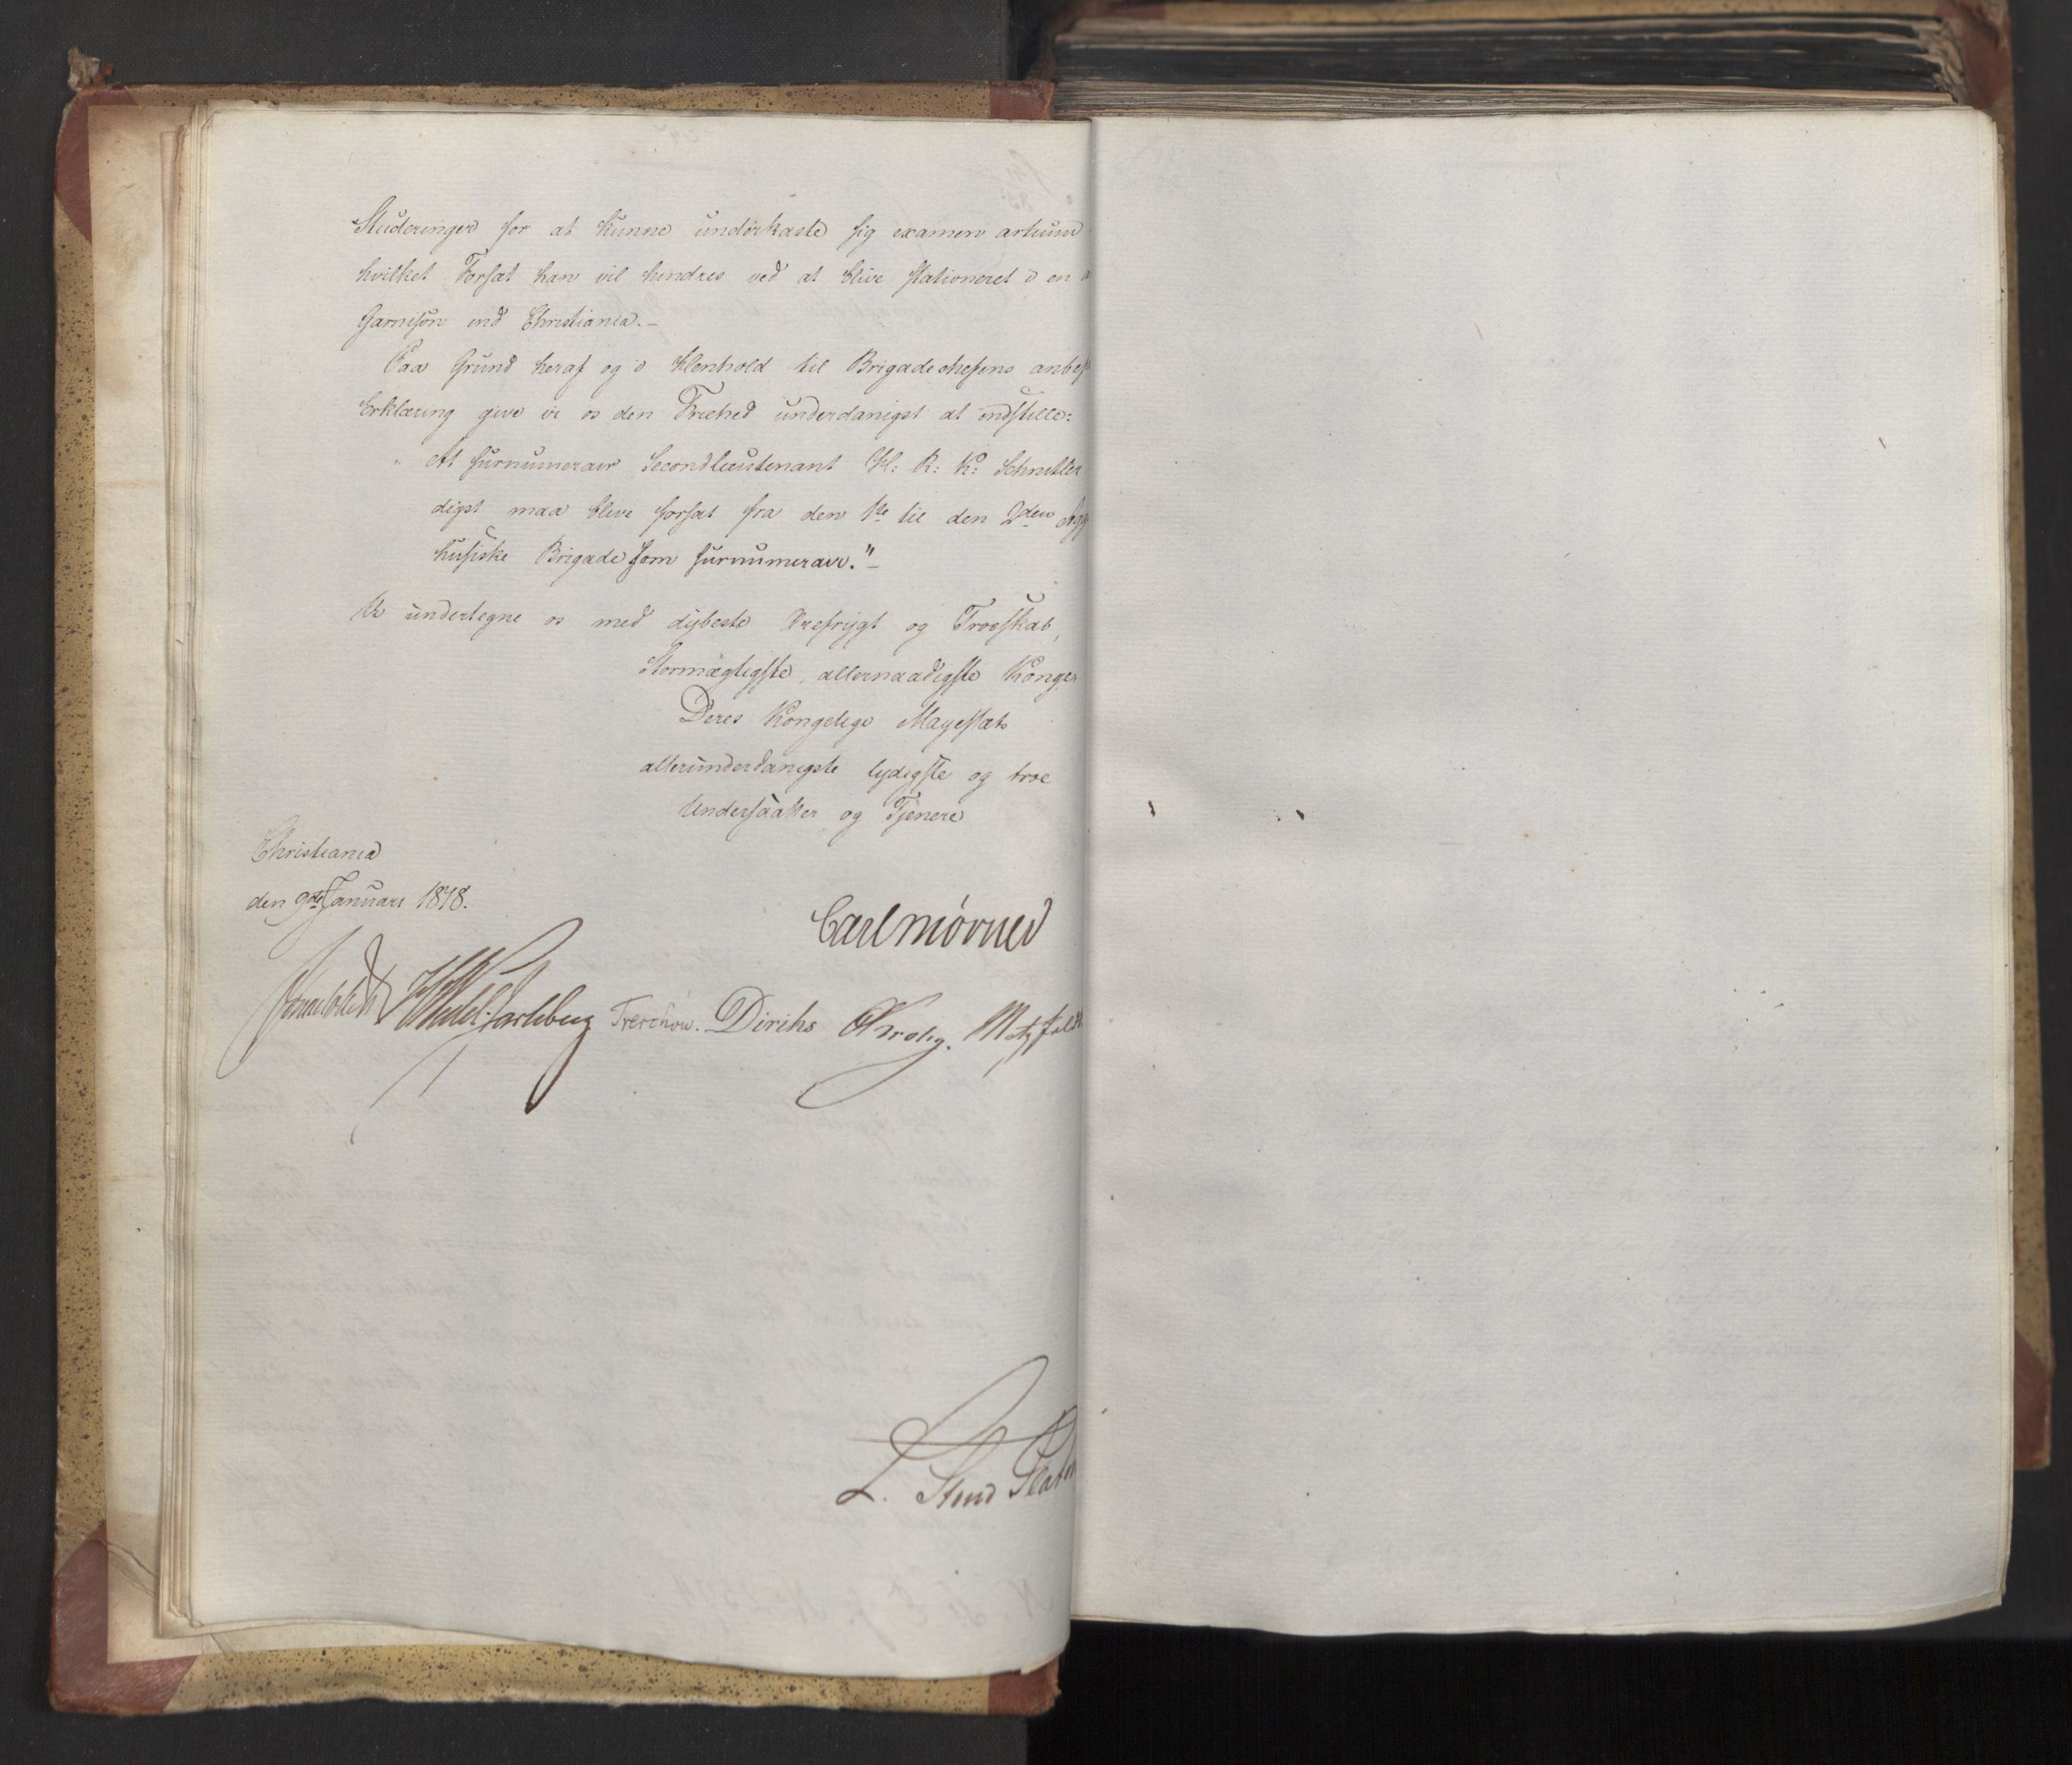 Studeringer for at kunne underkaste sig examen artium
hvilket Forsæt han vil hindres ved at blive stationeret i en
Garnison end Christiania.—
Paa Grund heraf og i Henhold til Brigadechefens
Erklæring give vi os den Friehed underdanigst at indstille:
" At surnumerair Secondlieutenant H: R: K: Schnitler
digst maa blive forsat fra den 1te til den 2den Agg
husiske Brigade som surnumerair."—
Vi undertegne os med dybeste Ærefrygt og Troeskab,
Stormægtigste, allernaadigste Konge
Deres Kongelige Mayestæts
allerunderdanigste lydigste og troe
Undersaatter og Tjenere
Christiania
den 9de Januari 1818.
Carl Mörner
Sommerhielm HWedel-Jarlsberg Treschow. Diriks Krohg. Motzfeldt
L. Stud Platou